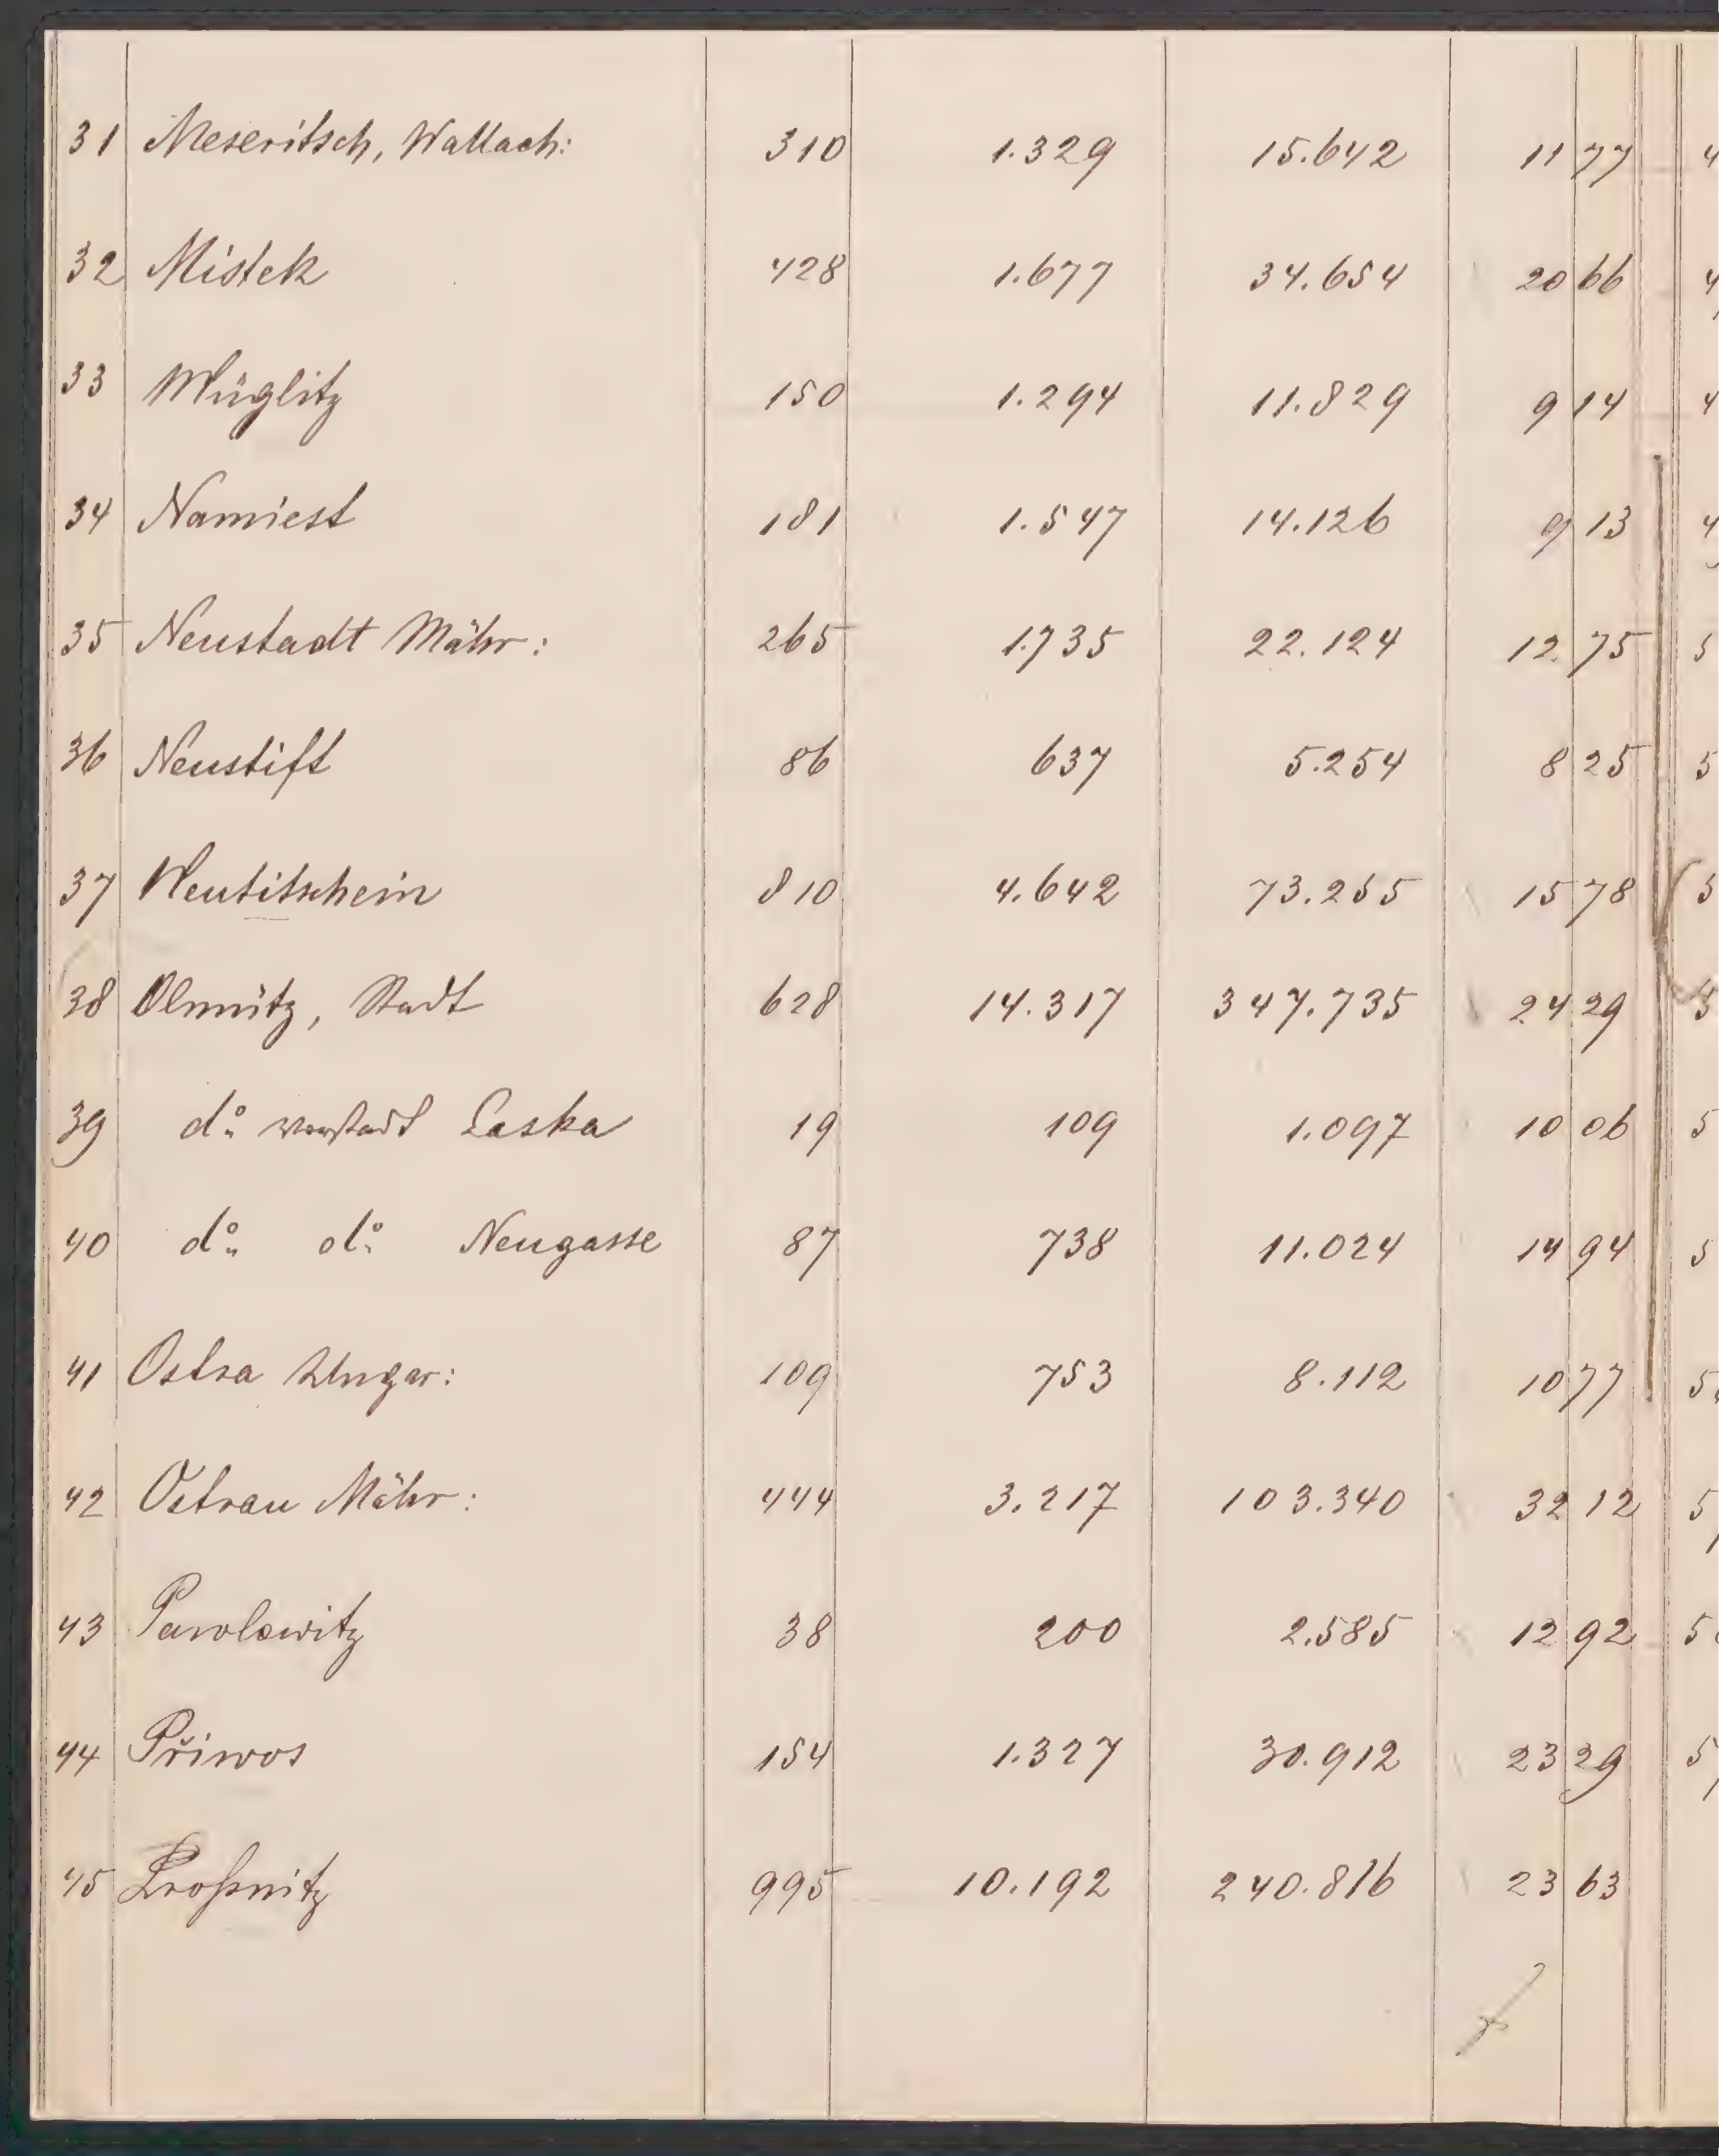 31 Meseritsch, Wallach: 310 1.329 15.642 11 77
32 Mistek 428 1.677 34.654 20 66
33 Müglitz 150 1.294 11.829 9 14
34 Namiest 181 1.547 14.126 9 13
35 Neustadt Mähr: 265 1.735 22.124 12. 75
36 Neustift 86 637 5.254 8 25
37 Neutitschein 810 4.642 73.255 15 78
38 Olmütz, Stadt 628 14.317 347.735 24 29
39 do. Vorstadt Laska 19 109 1.097 10 06
40 do. do. Neugasse 87 738 11.024 14 94
41 Ostra Ungar: 109 753 8.112 10 77
42 Ostrau Mähr: 444 3.217 103.340 32 12
43 Pawlowitz 38 200 2.585 12 92
44 Přiwos 154 1.327 30.912 23 29
45 Proßnitz 995 10.192 240.816 23 63